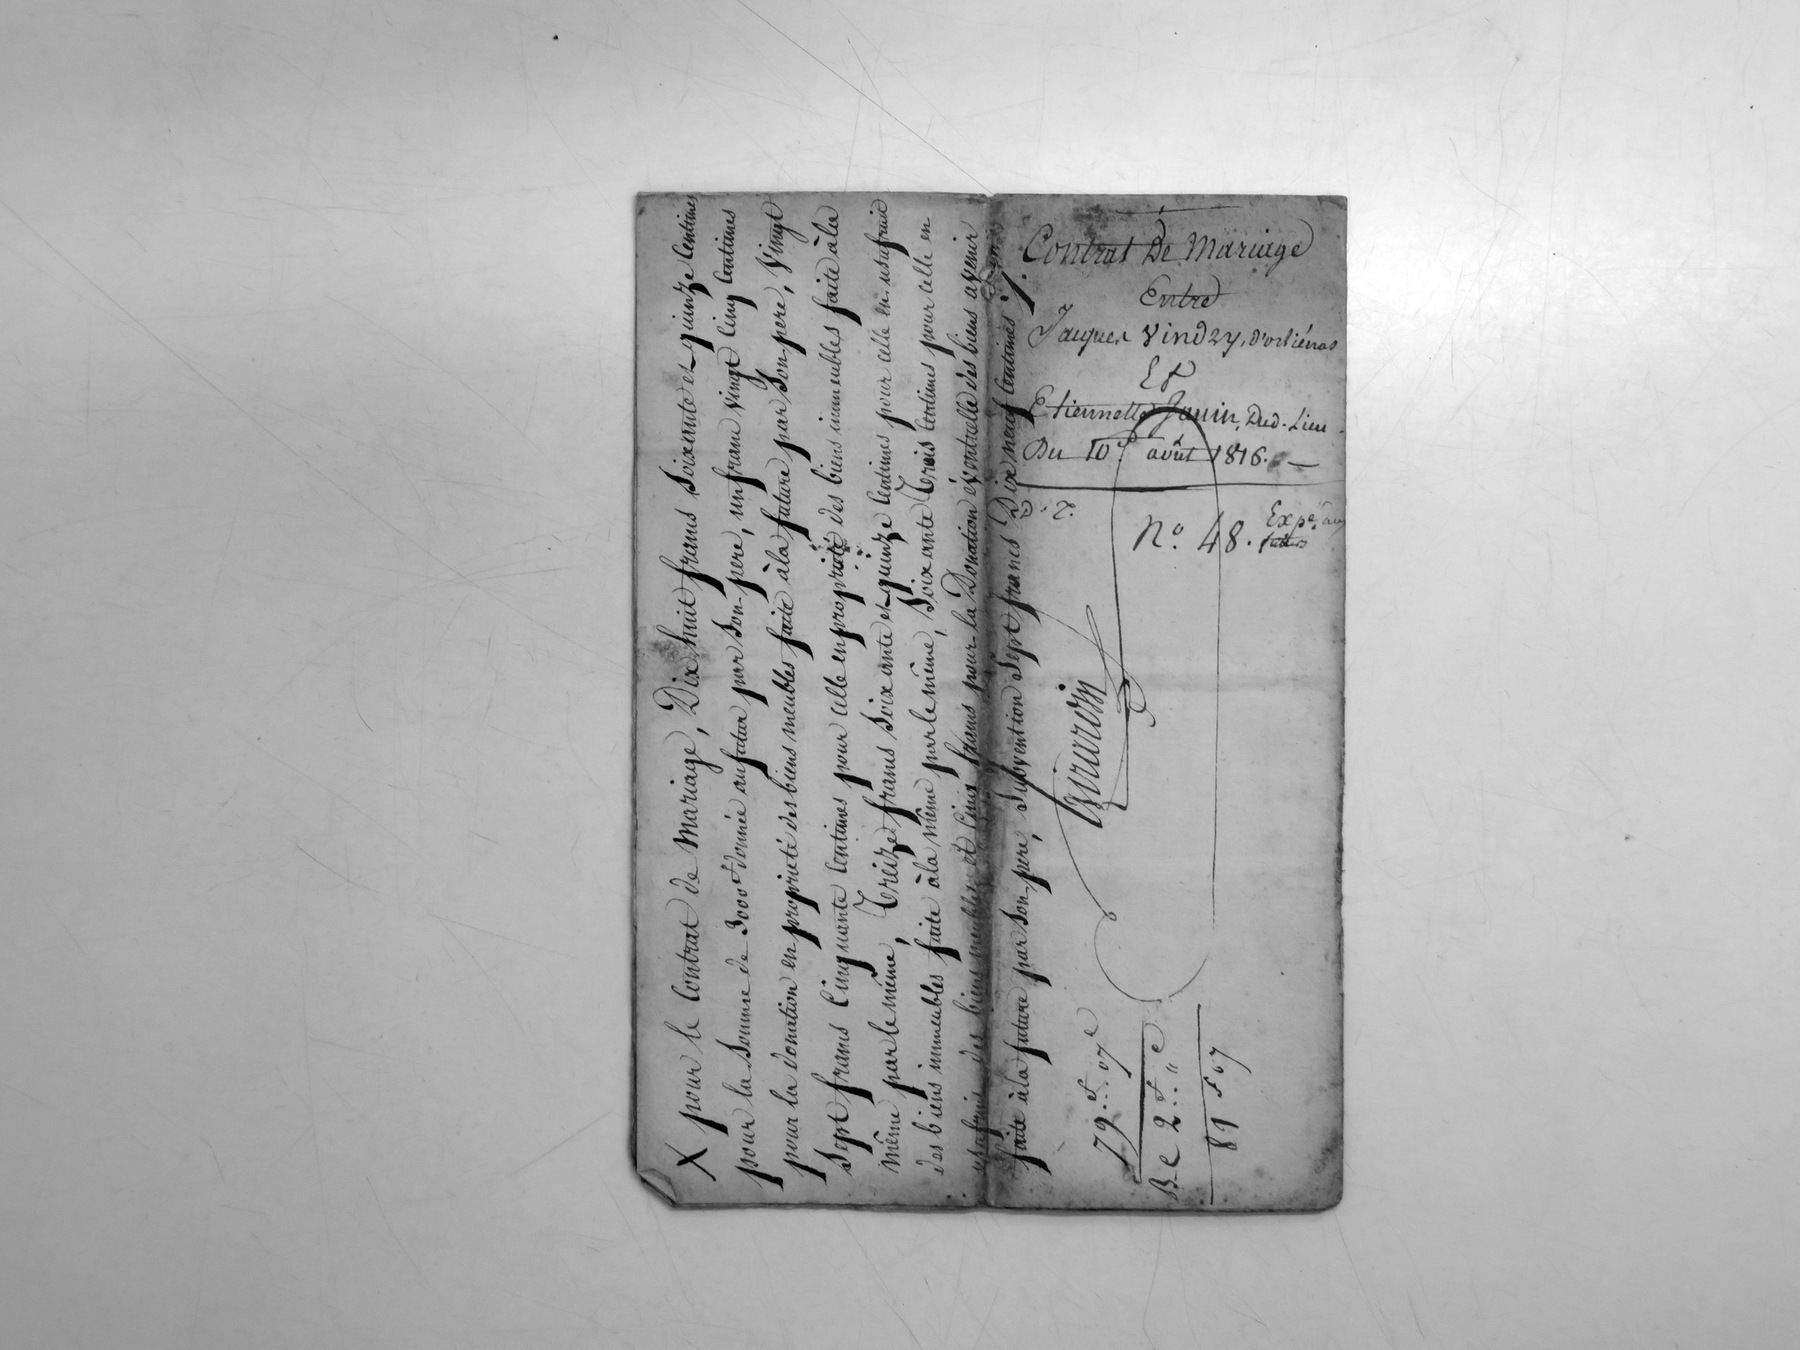 Contrat De Mariage
Entre
Jacques Vindry, d'orliénas
Et
Etiennette Janin, Dud. Lieu
Du 10e août 1816.
N.o 48. Expé. aux
futurs
X pour le Contrat de Mariage, Dix huit francs soixante et quinze Centimes
pour la somme de 3000 f donnée au futur par son pere, un franc vingt Cinq Centimes
pour la donation en propriété des biens meubles faite à la future par son pere, vingt
Sept francs Cinquante Centimes pour celle en propriété des biens immeubles faite à la
même par le même, Treize francs soixante et quinze Centimes pour celle en usufruit
des biens immeubles faite à la même par le même, soixante Trois Centimes pour celle en
usufruit des biens meubles et Cinq francs pour la Donation éventuelle des biens avenir
faite à la future par son pere, subvention sept francs Dix neuf Centimes ./.
79 f .. 07 c
Be 2 f .. " c
81 f 07